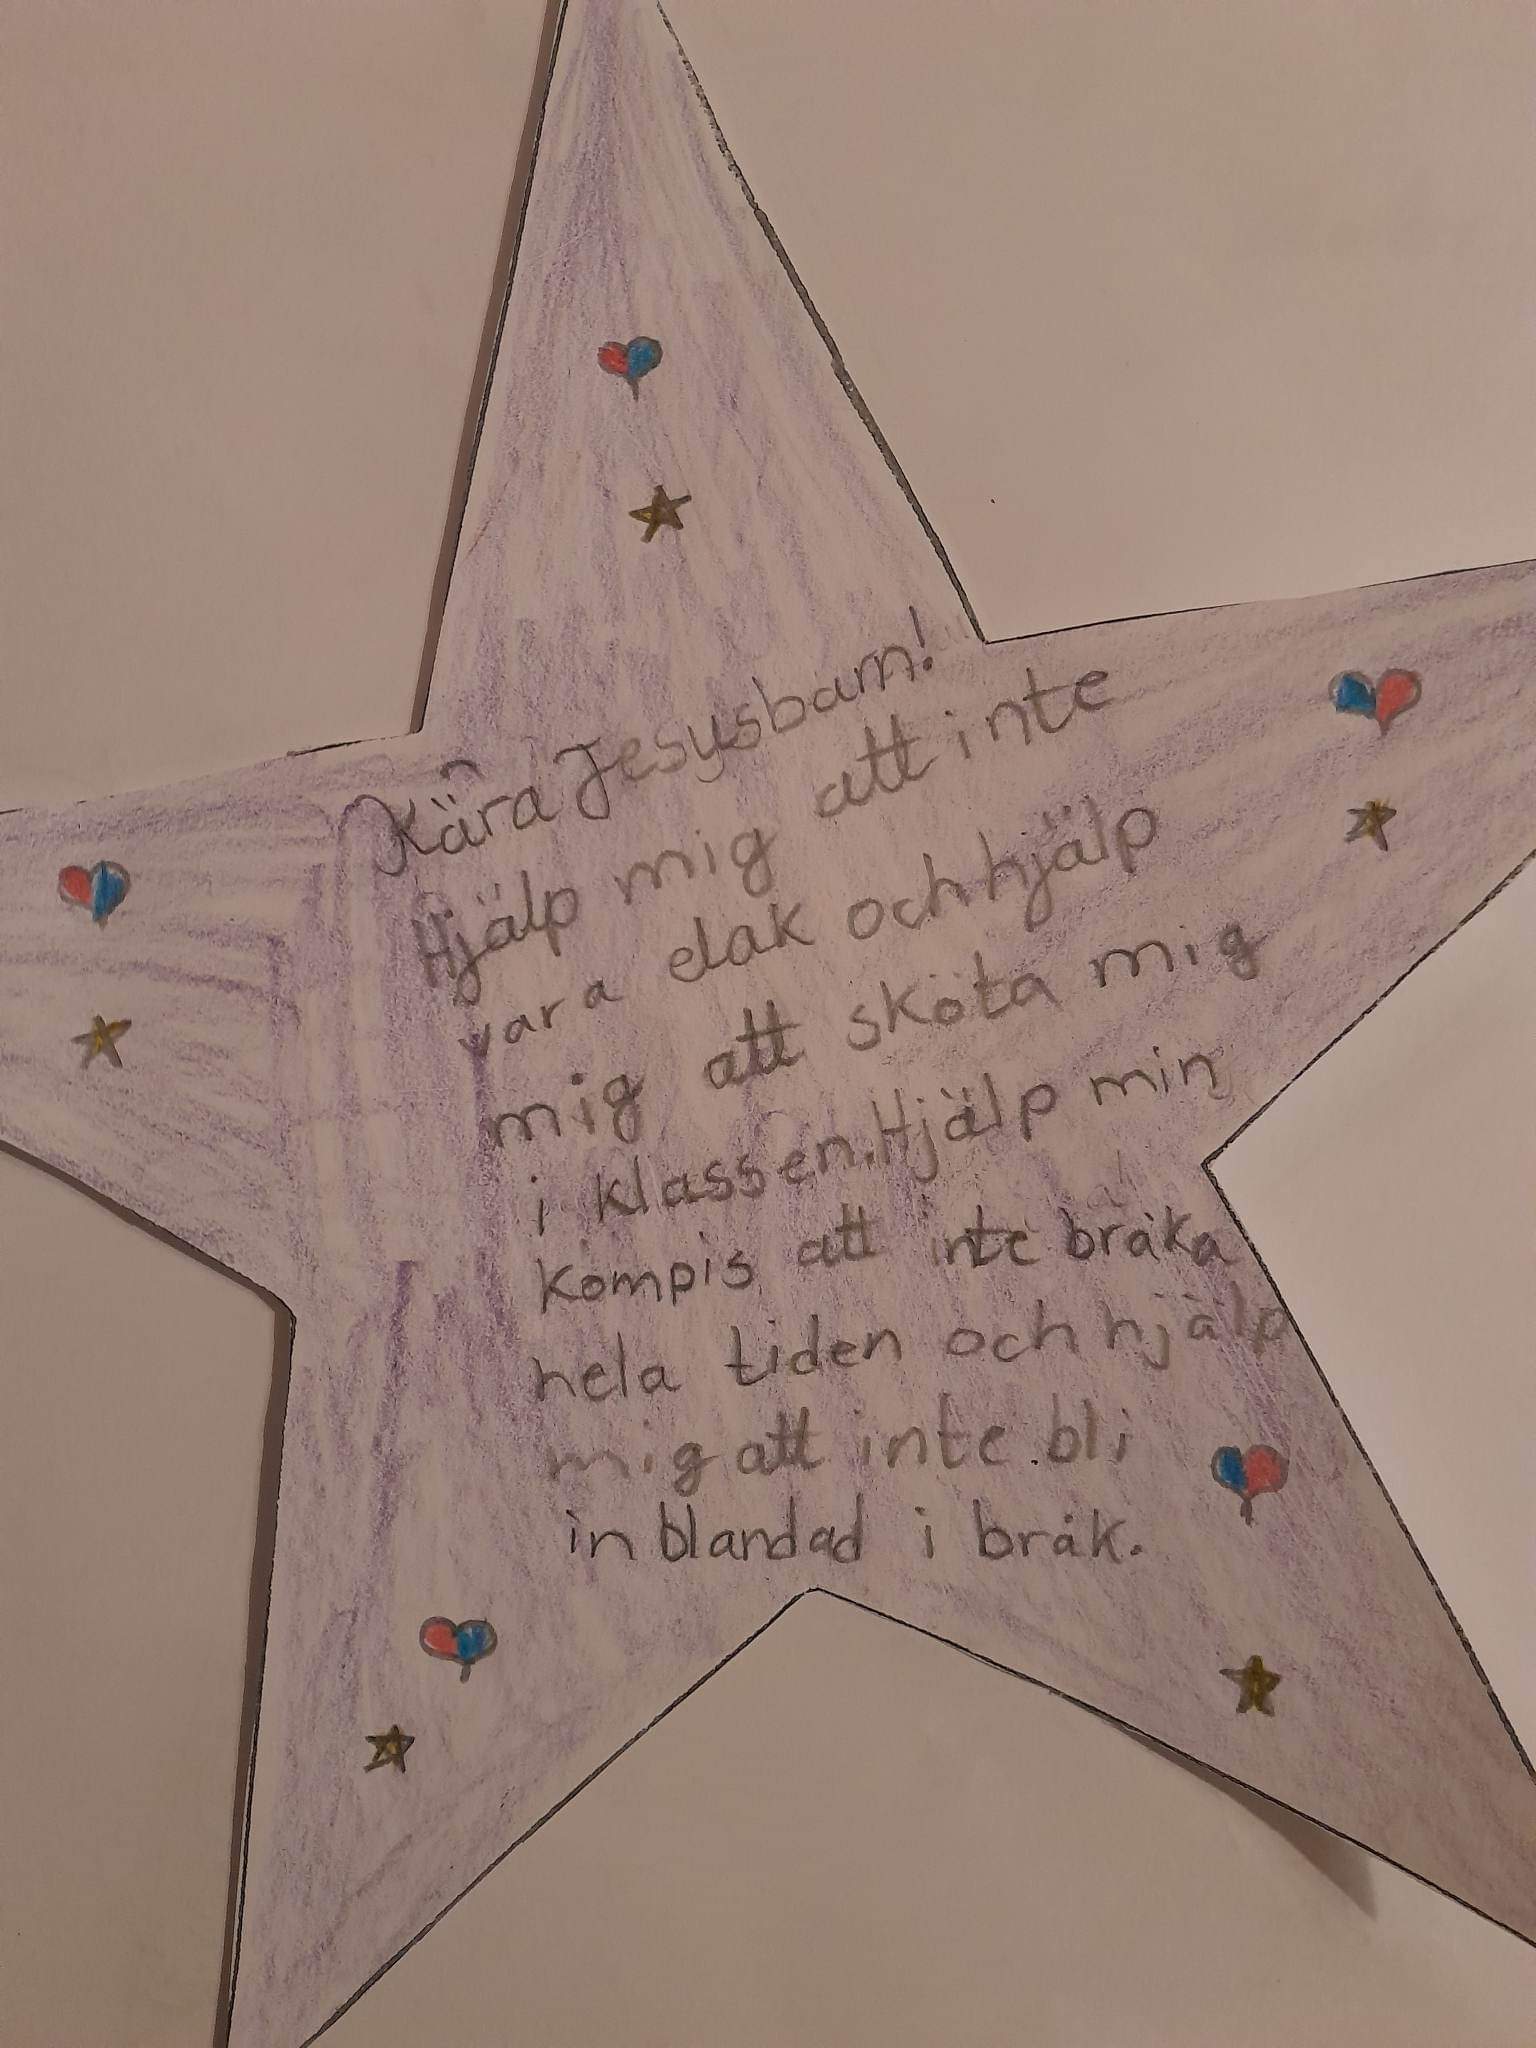 Kära Jesusbarn!
Hjälp mig att inte
vara elak och hjälp
mig att sköta mig
i klassen. Hjälp min
kompis att inte bråka
hela tiden och hjälp
mig att inte bli
inblandad i bråk.